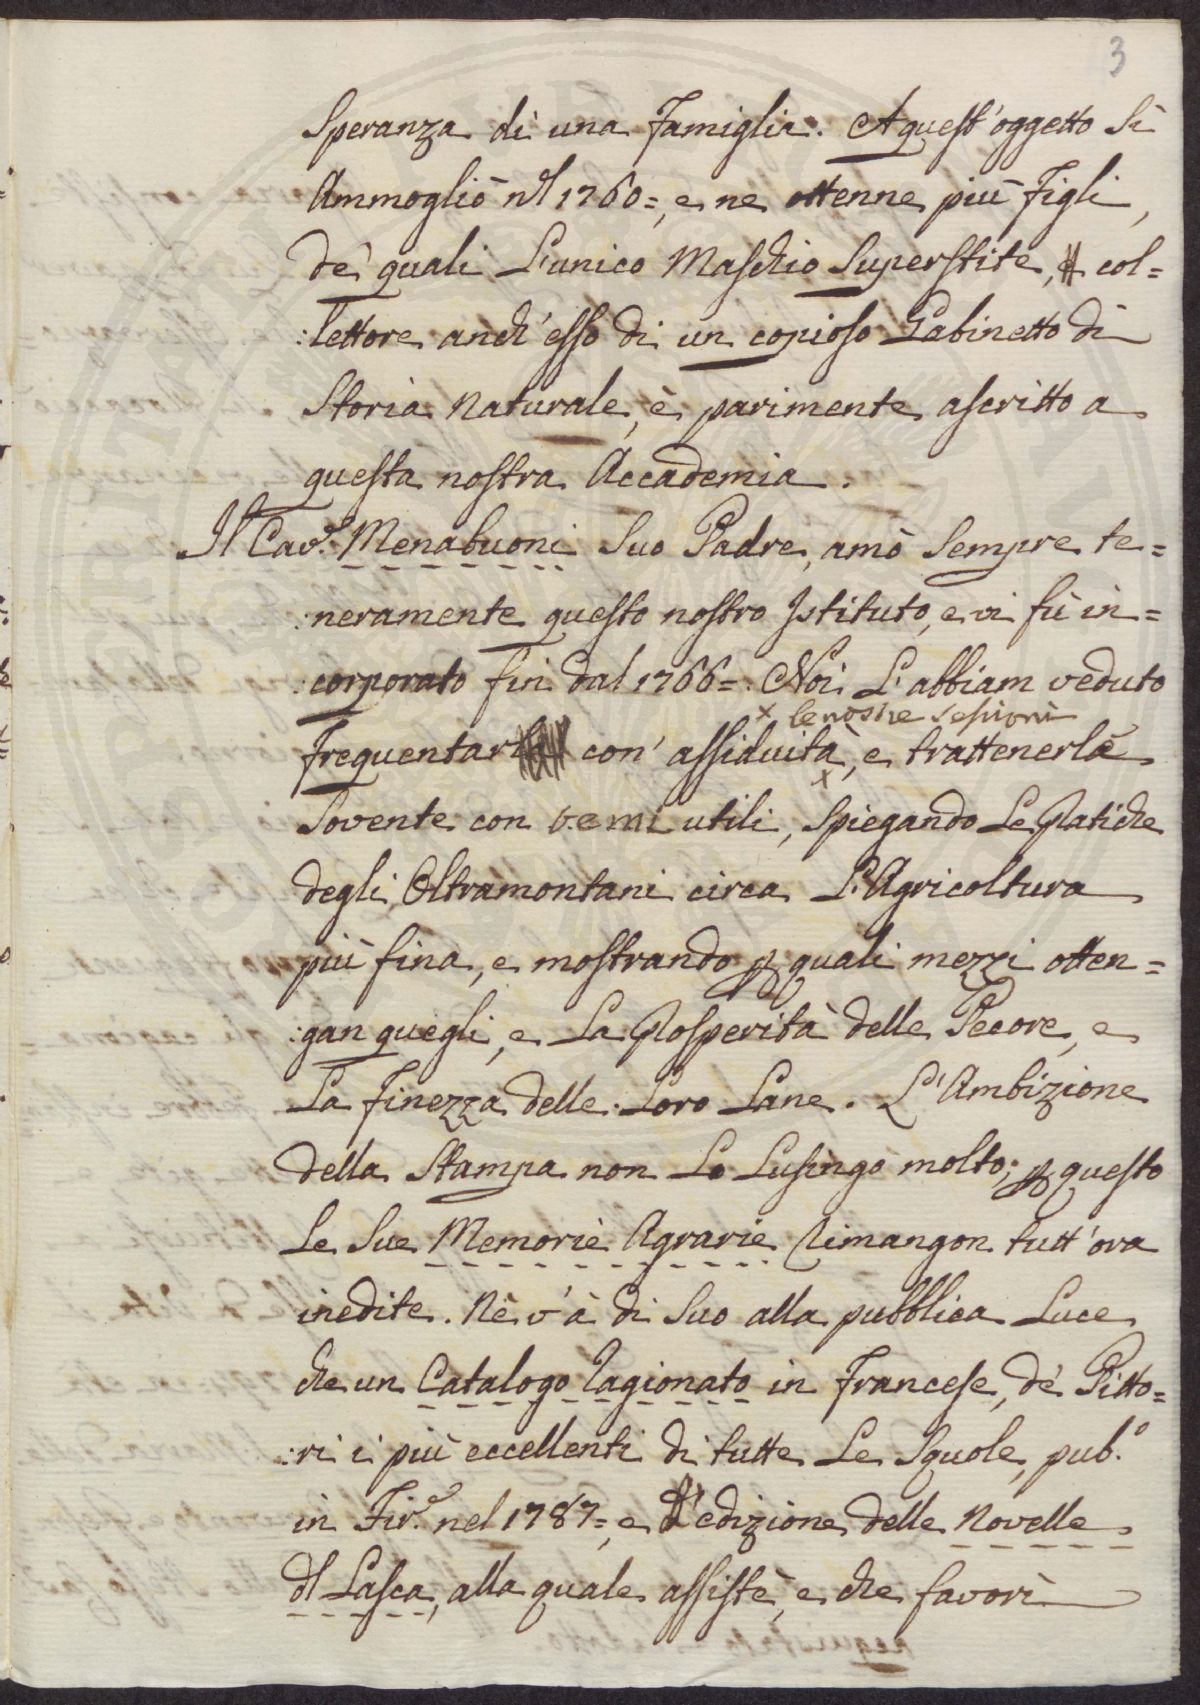 3
Speranza di una Famiglia. A quest'oggetto si
Ammogliò nel 1760=, e ne ottenne più Figli,
de' quali L'unico Maschio Superstite, col=
:lettore anch'esso di un copioso Gabinetto di
Storia Naturale, è parimente ascritto a
questa nostra Accademia.
Il Cav.e Menabuoni Suo Padre, amò Sempre te=
:neramente questo nostro Istituto, e vi fù in=
:corporato fin dal 1766=. Noi L'abbiam veduto
x le nostre sessioni
Frequentar con' assiduità x, e trattenerle
Sovente con temi utili, Spiegando Le Pratiche
degli Oltramontani circa L'Agricoltura
più fina, e mostrando p quali mezzi otten=
:gan quegli, e La Prosperità delle Pecore, e
La Finezza delle Loro Lane. L'Ambizione
della Stampa non Lo Lusingò molto; p questo
Le Sue Memorie Agrarie Rimangon tutt'ora
inedite. Nè v'à di Suo alla pubblica Luce
che un Catalogo Ragionato in Francese, de' Pitto=
:ri i più eccellenti di tutte Le Squole, pub.o
in Fir.e nel 1787=, e L'edizione delle Novelle
del Lasca, alla quale assistè, e che favorì